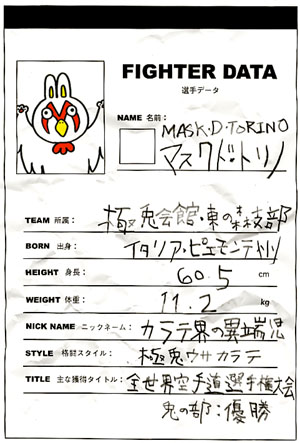 FIGHTER DATA
選手データ
NAME 名前：
MASK・D・TORINO
マスクド・トリノ
TEAM 所属： 極兎会館・東の森支部
BORN 出身： イタリア・ピエモンテ州
HEIGHT 身長： 60.5 cm
WEIGHT 体重： 11.2 kg
NICK NAME ニックネーム： カラテ界の異端児
STYLE 格闘スタイル： 極兎ウサカラテ
TITLE 主な獲得タイトル： 全世界空手道選手権大会
兎の部：優勝